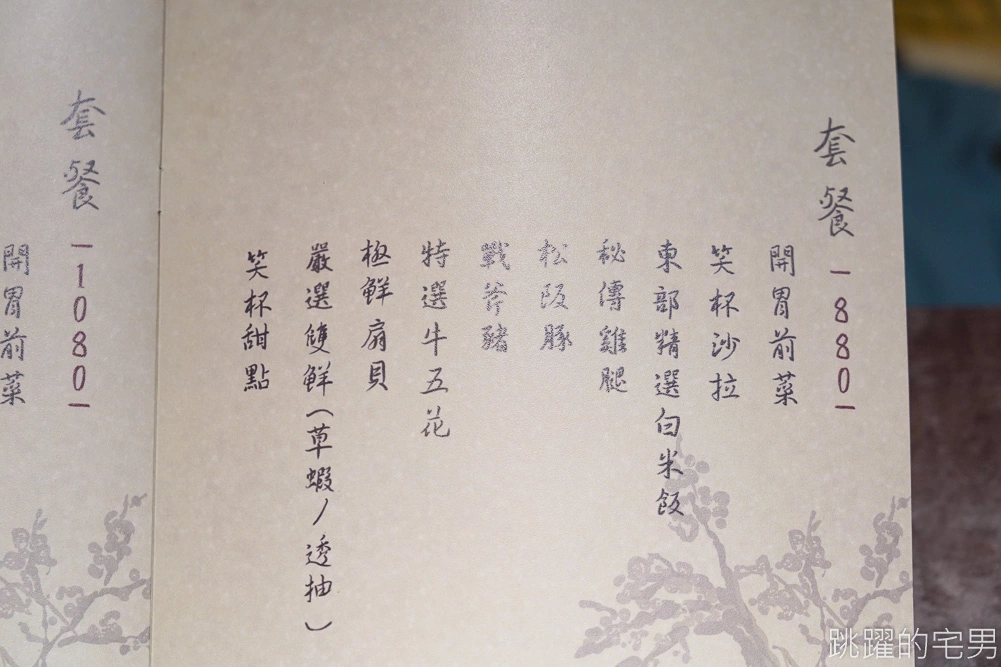 套餐
—880—
開胃前菜
笑杯沙拉
東部精選白米飯
秘傳雞腿
松阪豚
戰斧豬
特選牛五花
極鮮扇貝
嚴選雙鮮(草蝦/透抽)
笑杯甜點
套餐
—1080—
開胃前菜
跳躍的宅男